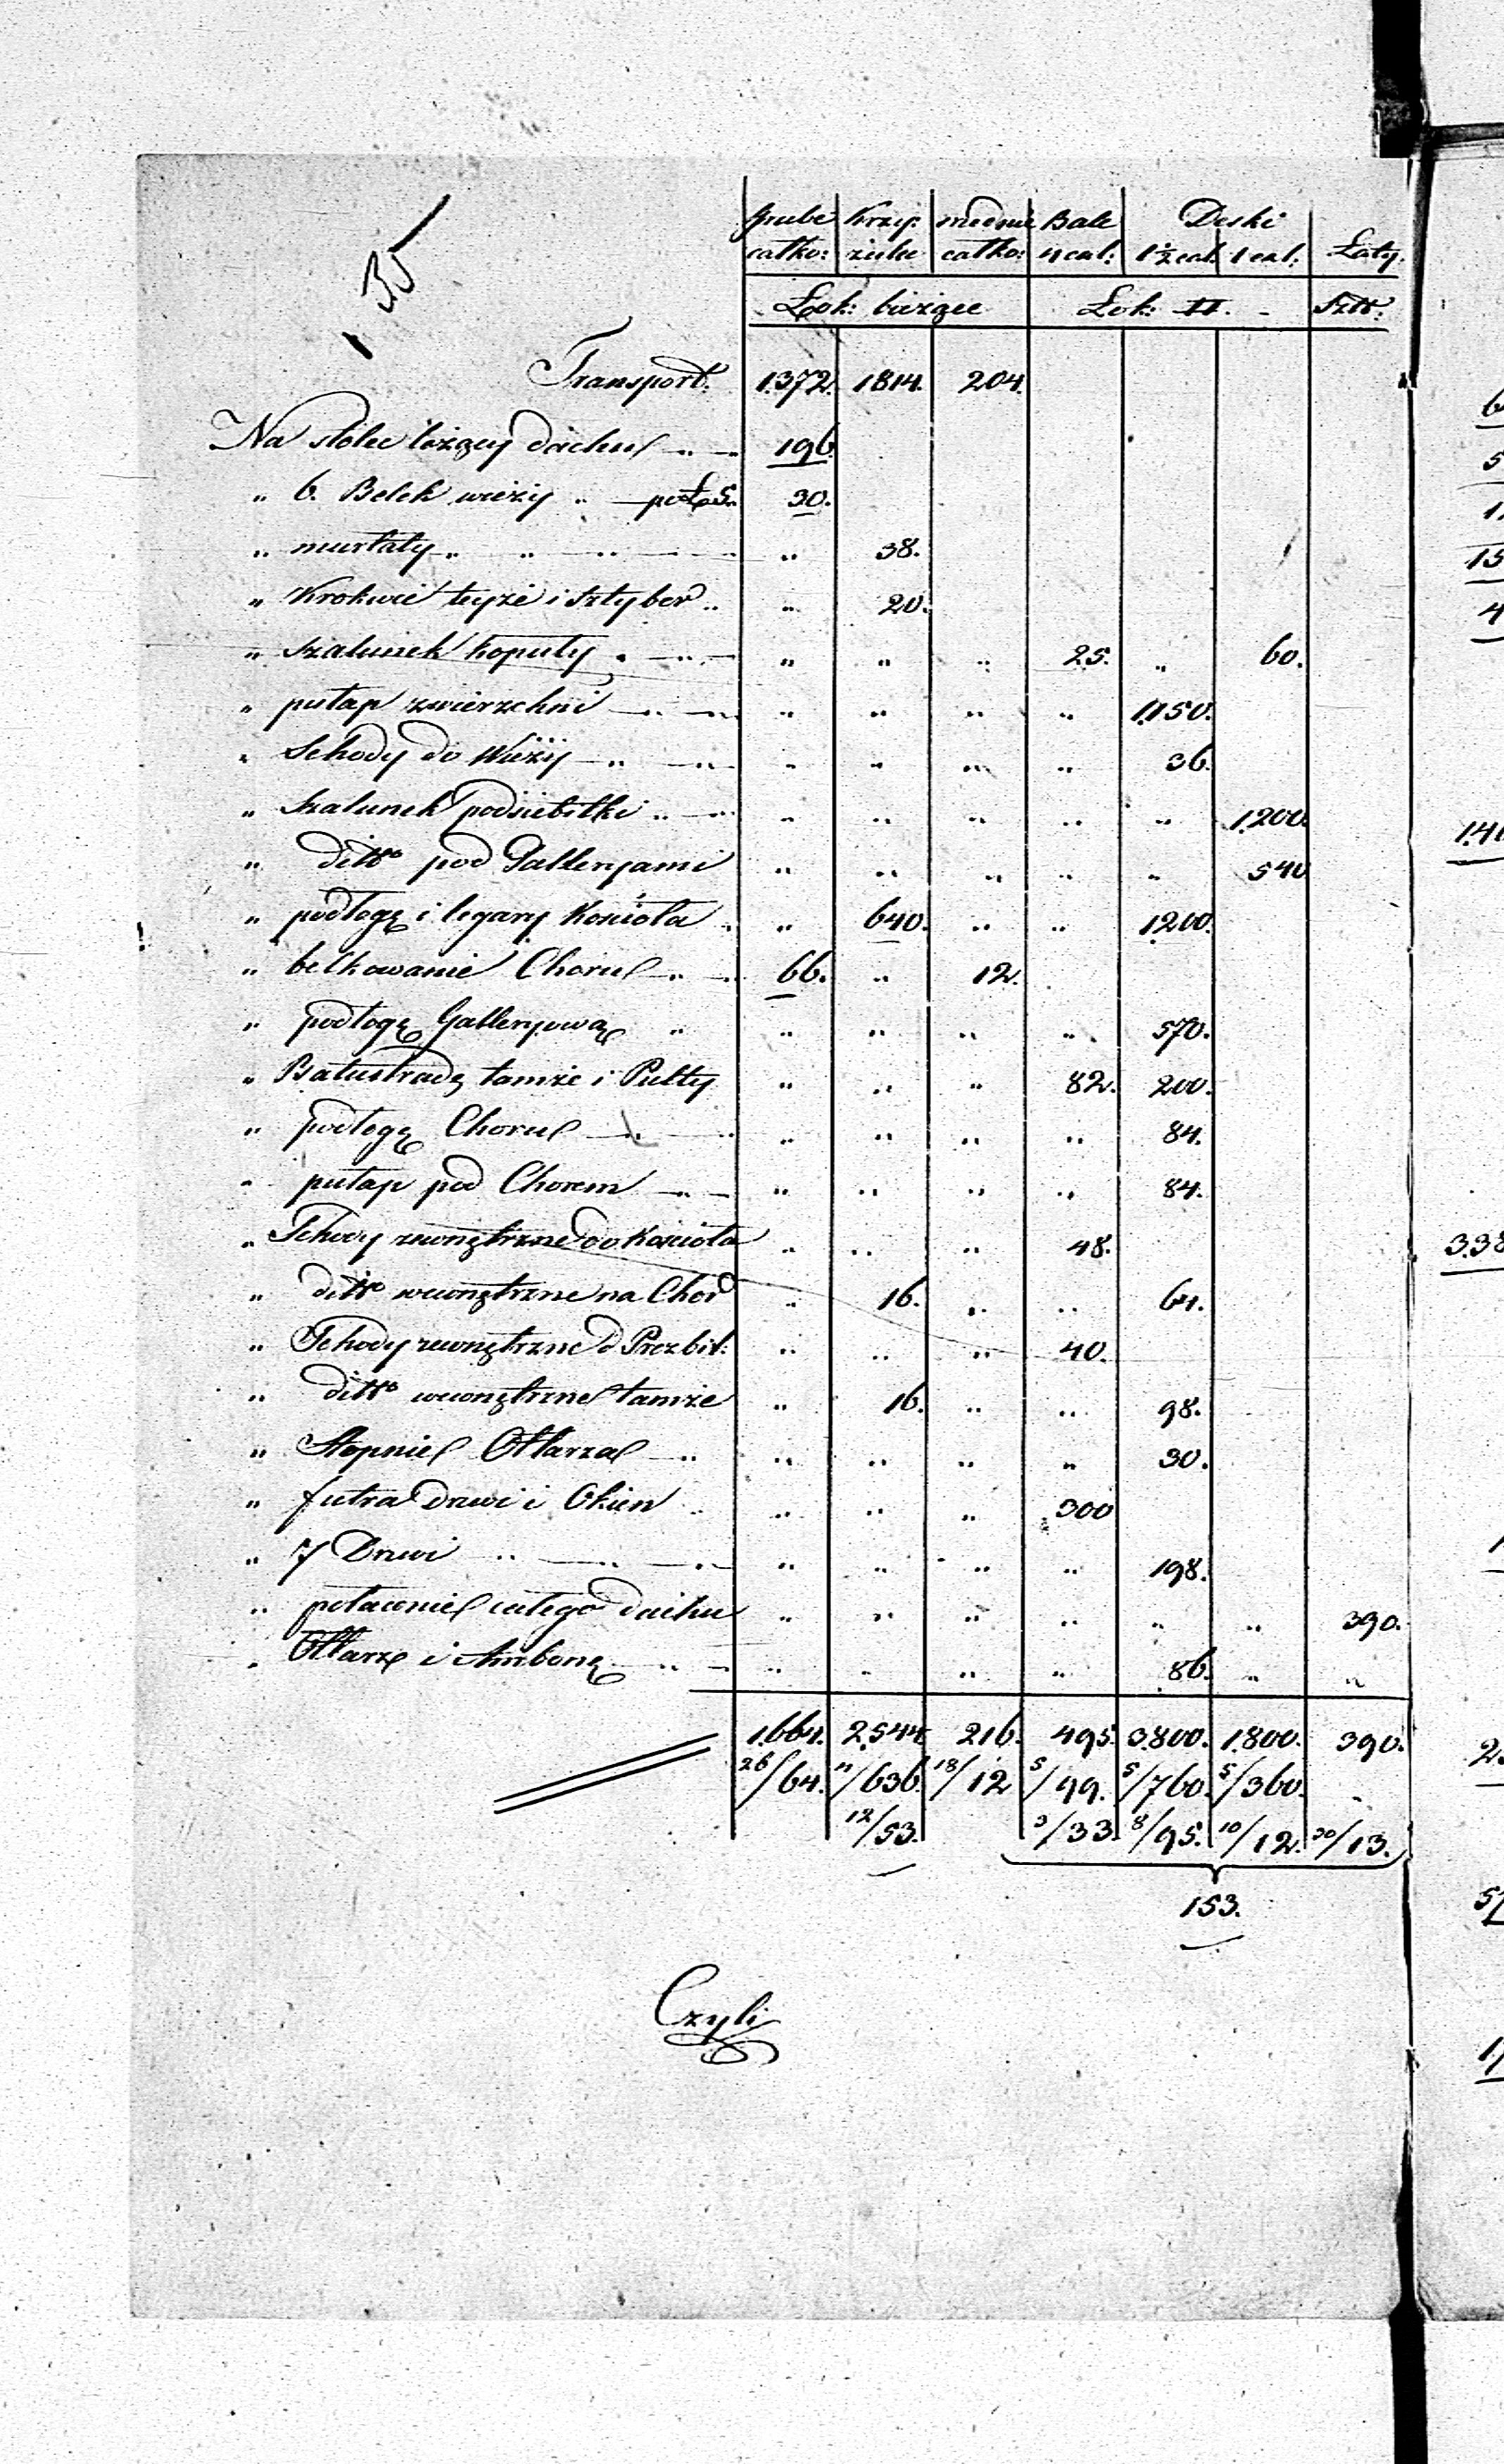 35
Grube Krzy: mednie Bale Deski
całko: żulce całko: 4 cal: 1½ cal. 1 cal: Łaty.
Łok: bieżące Łok: □. - Sztk:
Transport. 1372. 1814. 204.
Na stolec leżący dachu „ 196.
„ 6. Belek wieży „ po Ł 5. 30.
„ murłaty „ „ „ „ 38.
„ Krokwie teyże i Sztyber „ „ 20.
„ szalunek kopuły . „ „ „ „ 25. „ 60.
„ pułap zwierzchni „ „ „ „ „ 1,150.
„ Schody do Wieży „ „ „ „ „ „ 36.
„ Szalunek podsiebitki „ „ „ „ „ „ 1,200.
„ ditto pod Galleryami „ „ „ „ „ 540
„ podłogę i legary Kościoła „ 640. „ „ 1,200.
„ belkowanie Choru „ 66. „ 12.
„ podłogę Galleryową „ „ „ „ „ 570.
„ Balustradę tamże i Pulty „ „ „ 82. 200.
„ podłogę Choru „ „ „ „ „ 84.
„ pułap pod Chorem „ „ „ „ „ 84.
„ Schody zewnętrzne do Kościoła „ „ „ 48.
„ ditto wewnętrzne na Chor „ 16. „ „ 64.
„ Schody zewnętrzne d Prezbit: „ „ „ 40.
„ ditto wewnętrzne tamże „ 16. „ „ 98.
„ Stopnie Ołtarza „ „ „ „ „ 30.
„ futra drzwi i Okien „ „ „ 300
„ 7 Drzwi „ „ „ „ „ „ „ 198.
„ połacenie całego dachu „ „ „ „ „ „ 390.
„ Ołtarze i Ambonę „ „ „ „ „ 86. „ „
1,664. 2,544 216. 495. 3,800. 1,800. 390.
26/64. 4/636. 18/12 5/99. 5/760. 5/360.
12/53. 3/33. 8/95. 30/12. 30/13.
153.
Czyli